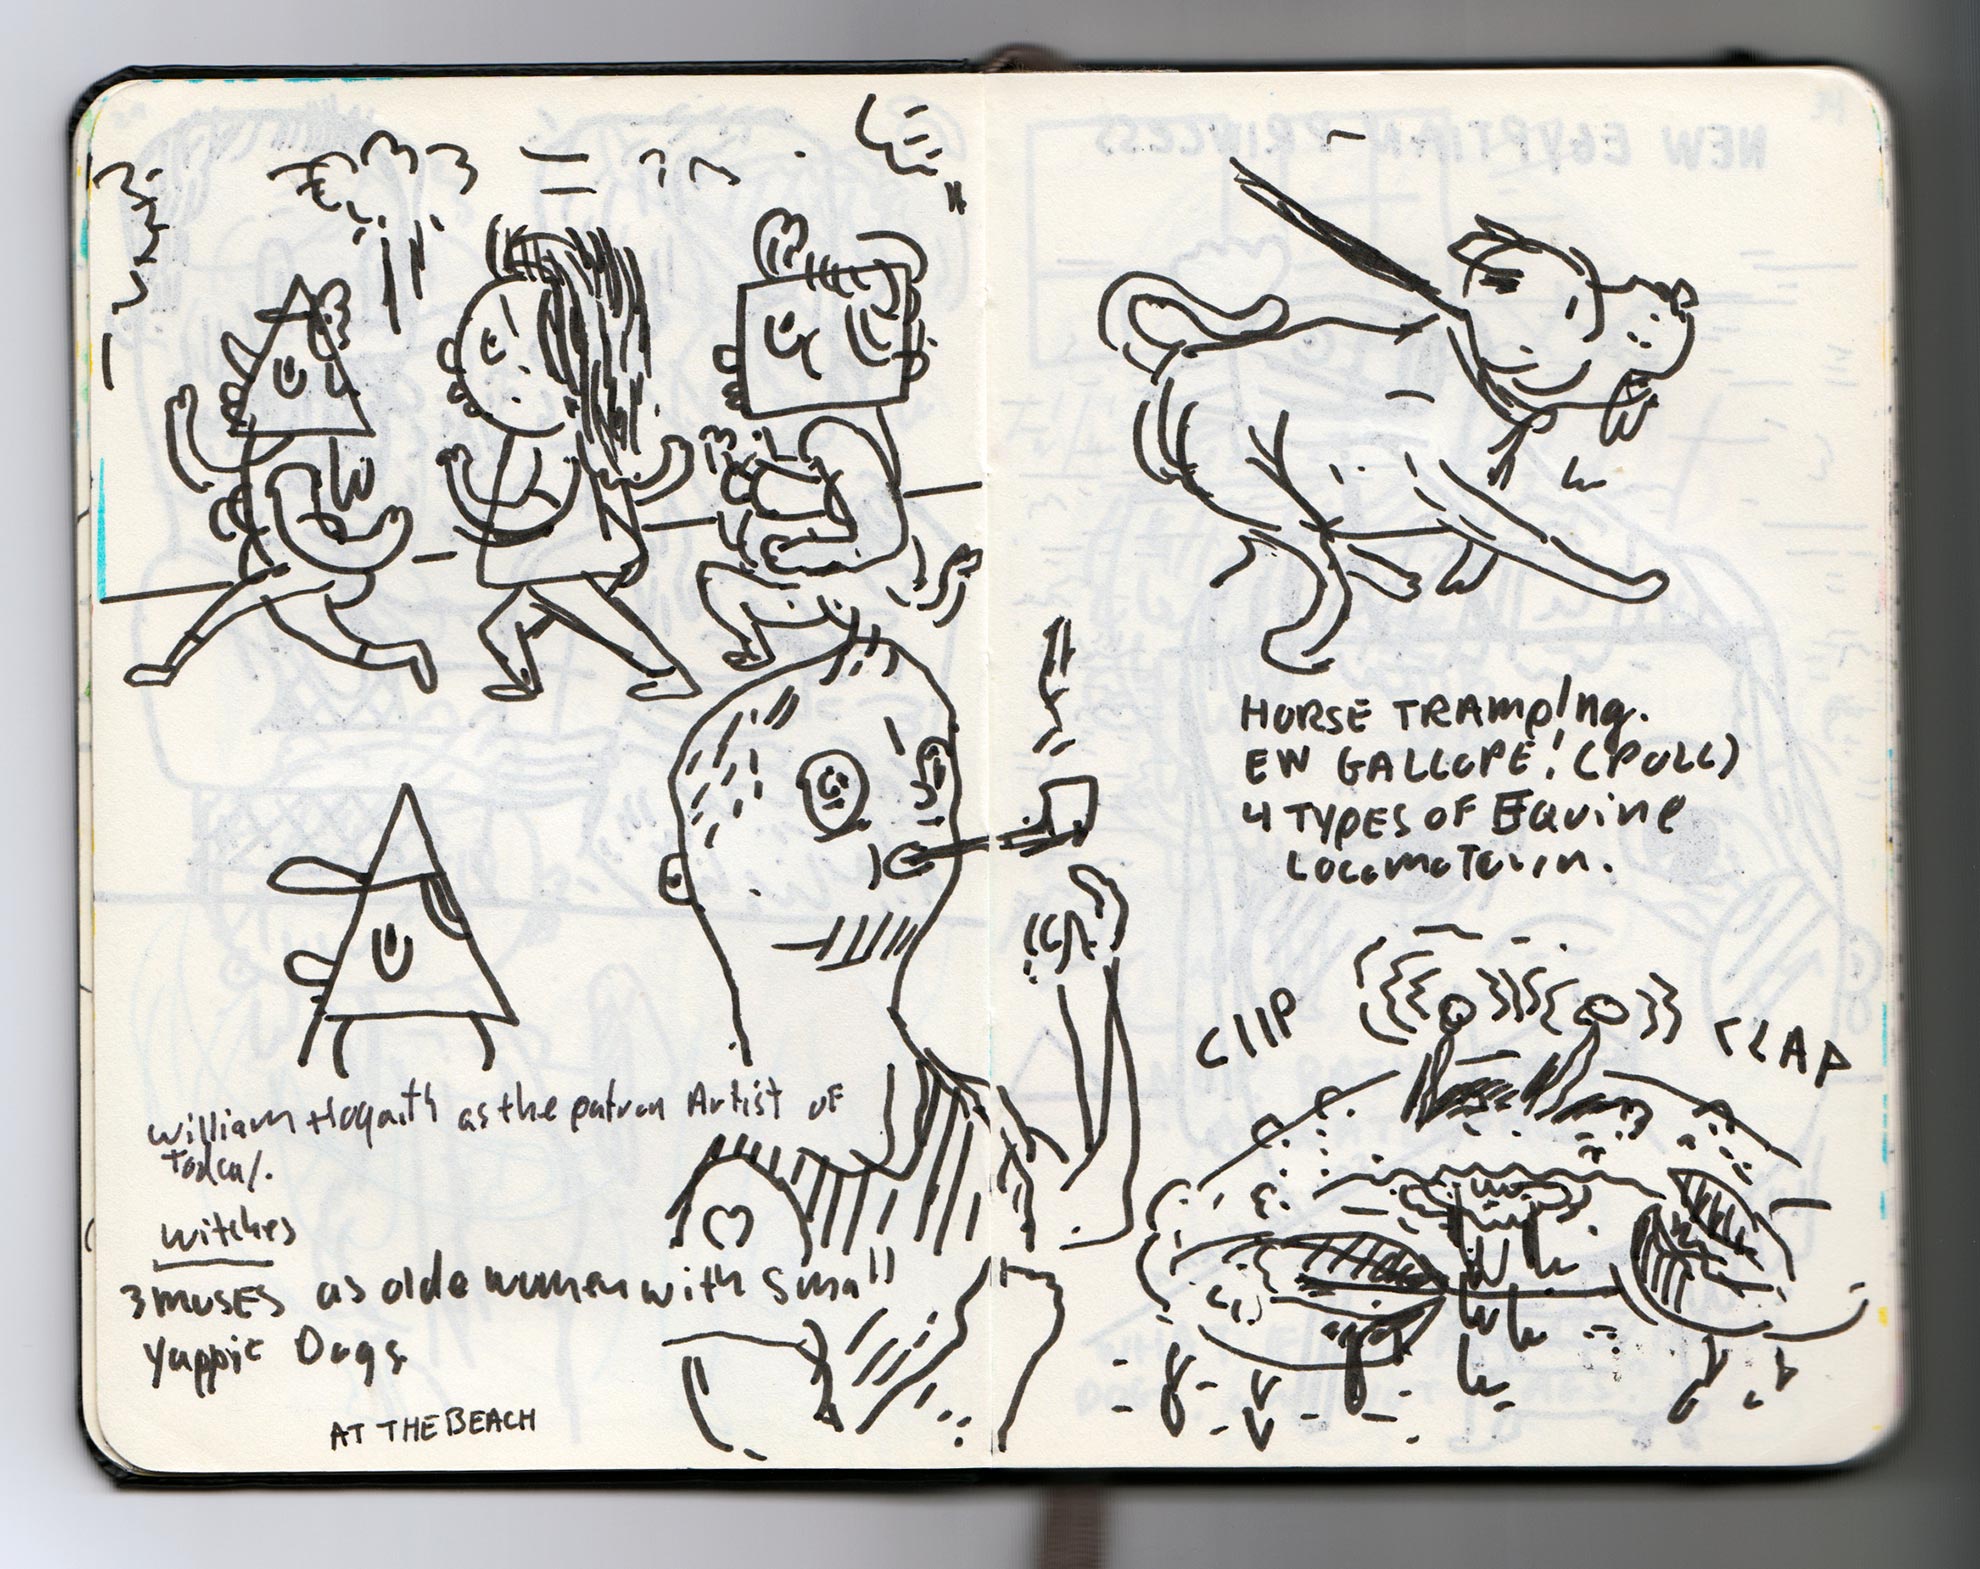 William Hogarth as the patron Artist of
Today.
witches
3 MUSES as olde women with Small
Yappie Dogs
AT THE BEACH
NEW EGYPTIAN PRINCESS
HORSE TRAMPINg.
EN GALLOPE! (POLL)
4 TYPES OF Equine
LOCOMOTOIN.
CLIP
CLAP